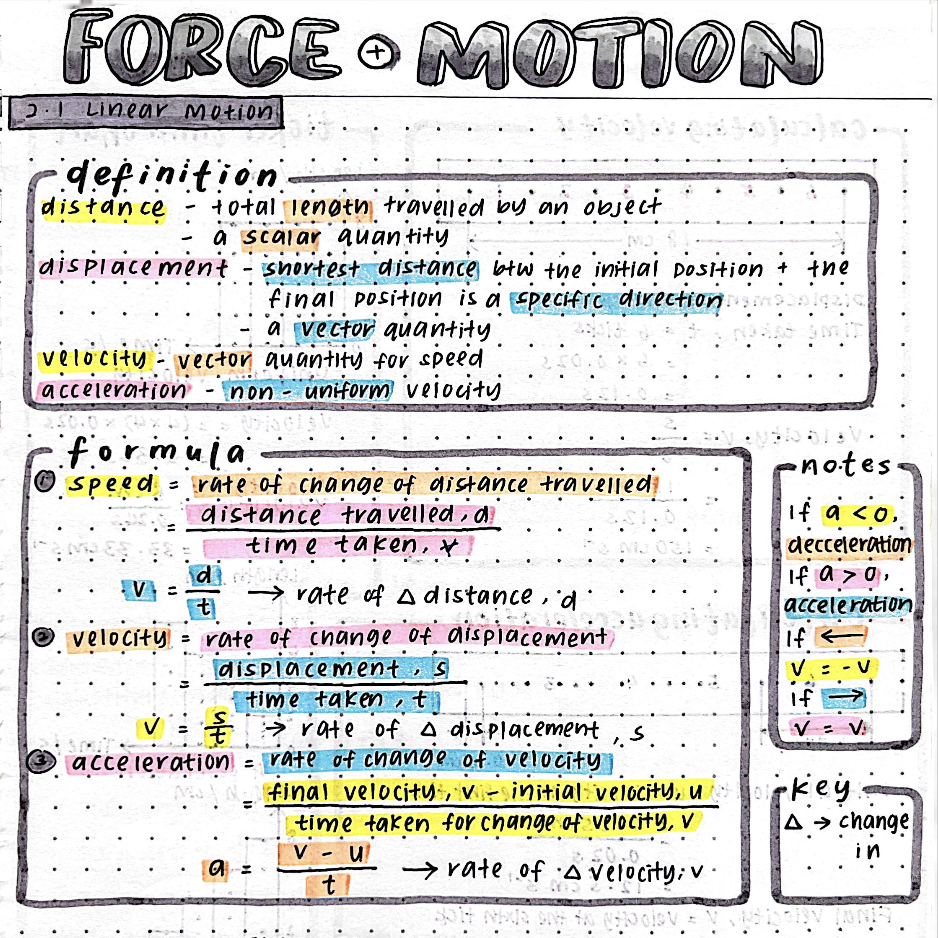 FORCE + MOTION
2.1 Linear Motion
definition
distance - total length travelled by an object
- a scalar quantity
displacement - shortest distance btw the initial position + the
final position is a specific direction
- a vector quantity
velocity - vector quantity for speed
acceleration - non-uniform velocity
formula
① speed = rate of change of distance travelled
= distance travelled, d
time taken, t
v = d/t → rate of Δ distance, d
② velocity = rate of change of displacement
= displacement, s
time taken, t
v = s/t → rate of Δ displacement, s
③ acceleration = rate of change of velocity
= final velocity, v - initial velocity, u
time taken for change of velocity, v
a = v - u
t
→ rate of Δ velocity, v
notes
If a < 0,
decceleration
If a > 0,
acceleration
If ←
v = -v
if →
v = v
key
Δ → change
in